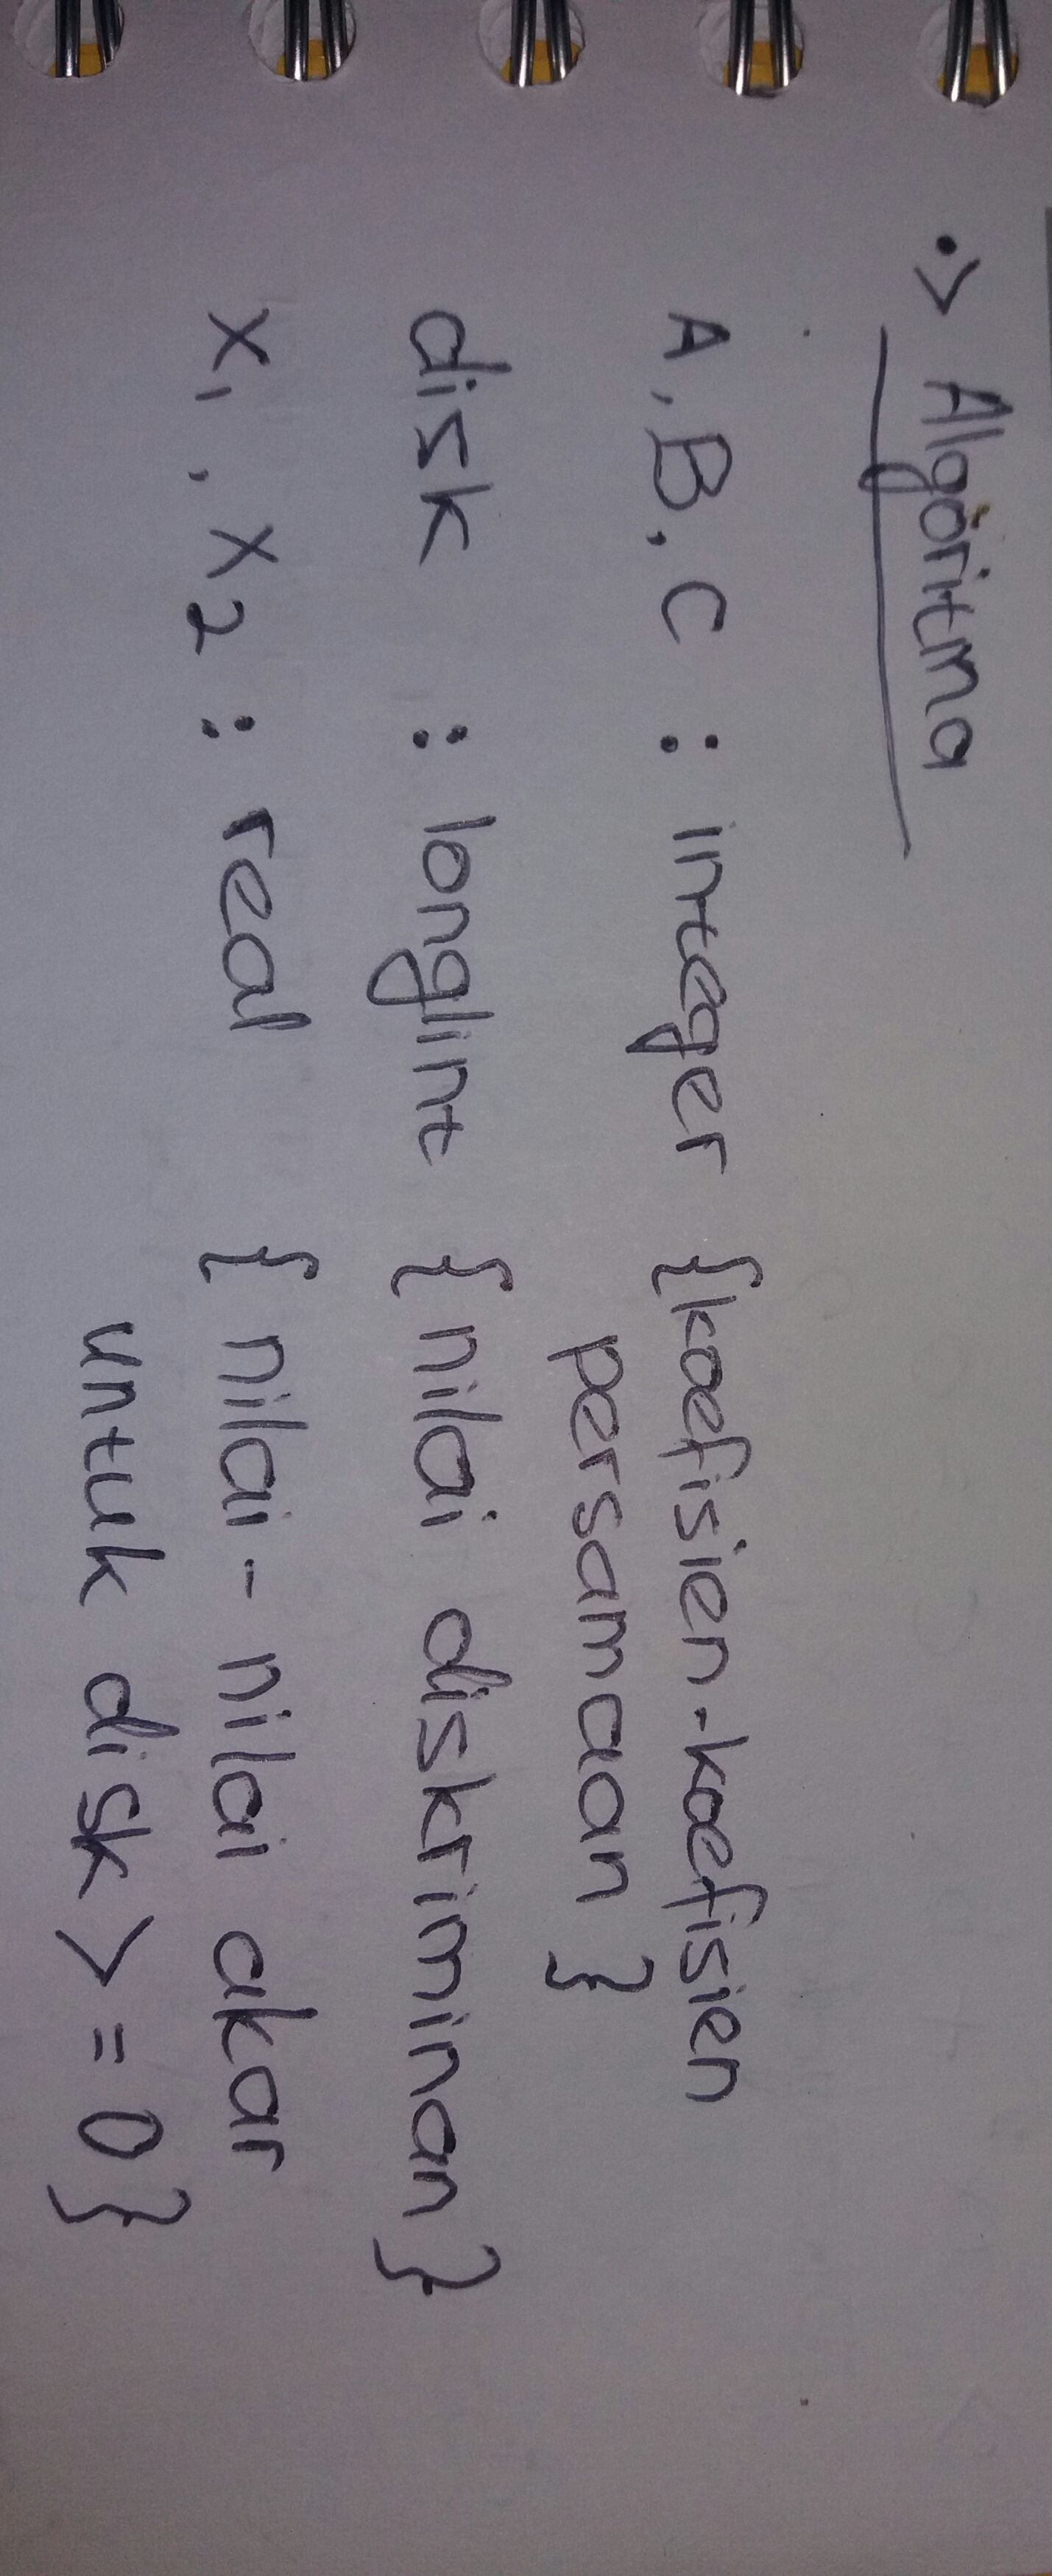 •> Algoritma
A, B, C : integer {koefisien-koefisien
persamaan }
disk : longlint { nilai diskriminan }
x1, x2 : real { nilai - nilai akar
untuk disk > = 0 }